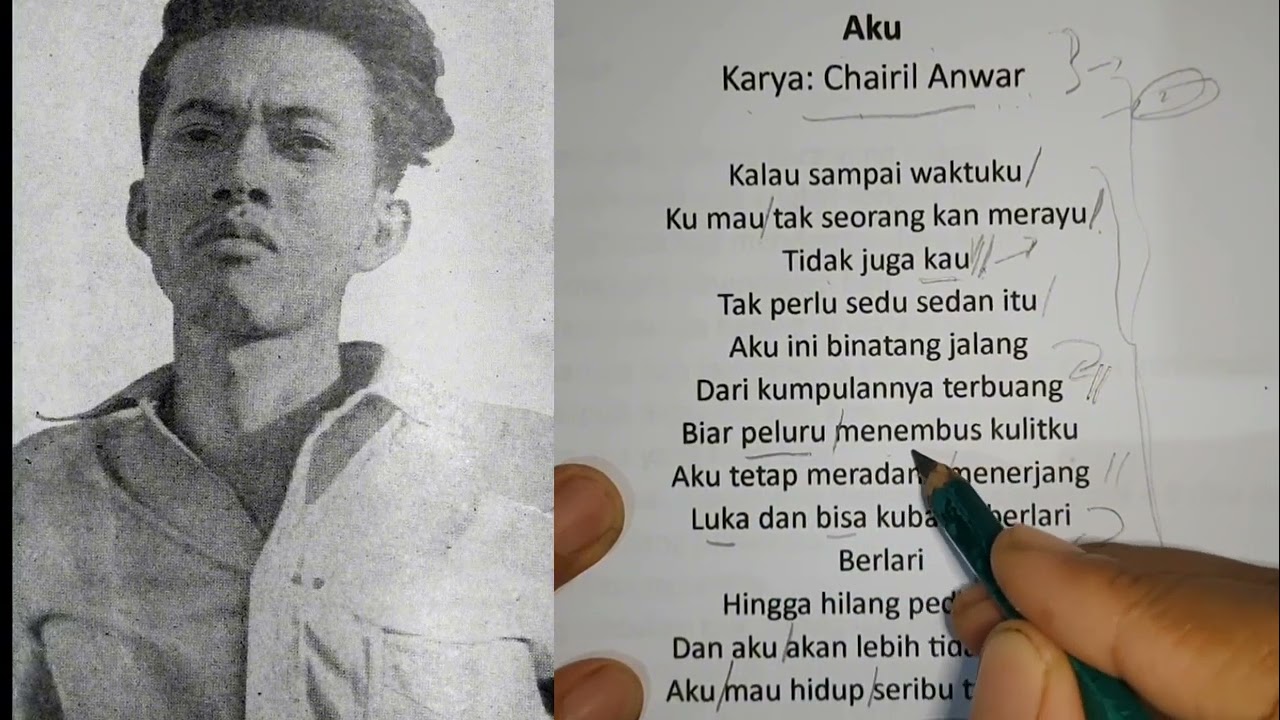 Aku
Karya: Chairil Anwar
Kalau sampai waktuku/
Ku mau/tak seorang kan merayu/
Tidak juga kau//
Tak perlu sedu sedan itu/
Aku ini binatang jalang
Dari kumpulannya terbuang//
Biar peluru/menembus kulitku
Aku tetap //
Luka dan bisa berlari
Berlari
Hingga hilang
Dan aku/akan lebih
Aku/mau hidup/seribu